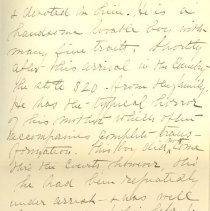 & devoted to him. He is a
handsome lovable boy with
many fine traits. Shortly
after his arrival in the County
he stole $20. from the family
He has the typical horror
of his mother which often
accompanies complete trans-
formation. This boy did some
this the Courts honour this
he had been repeated
under arrest - was well